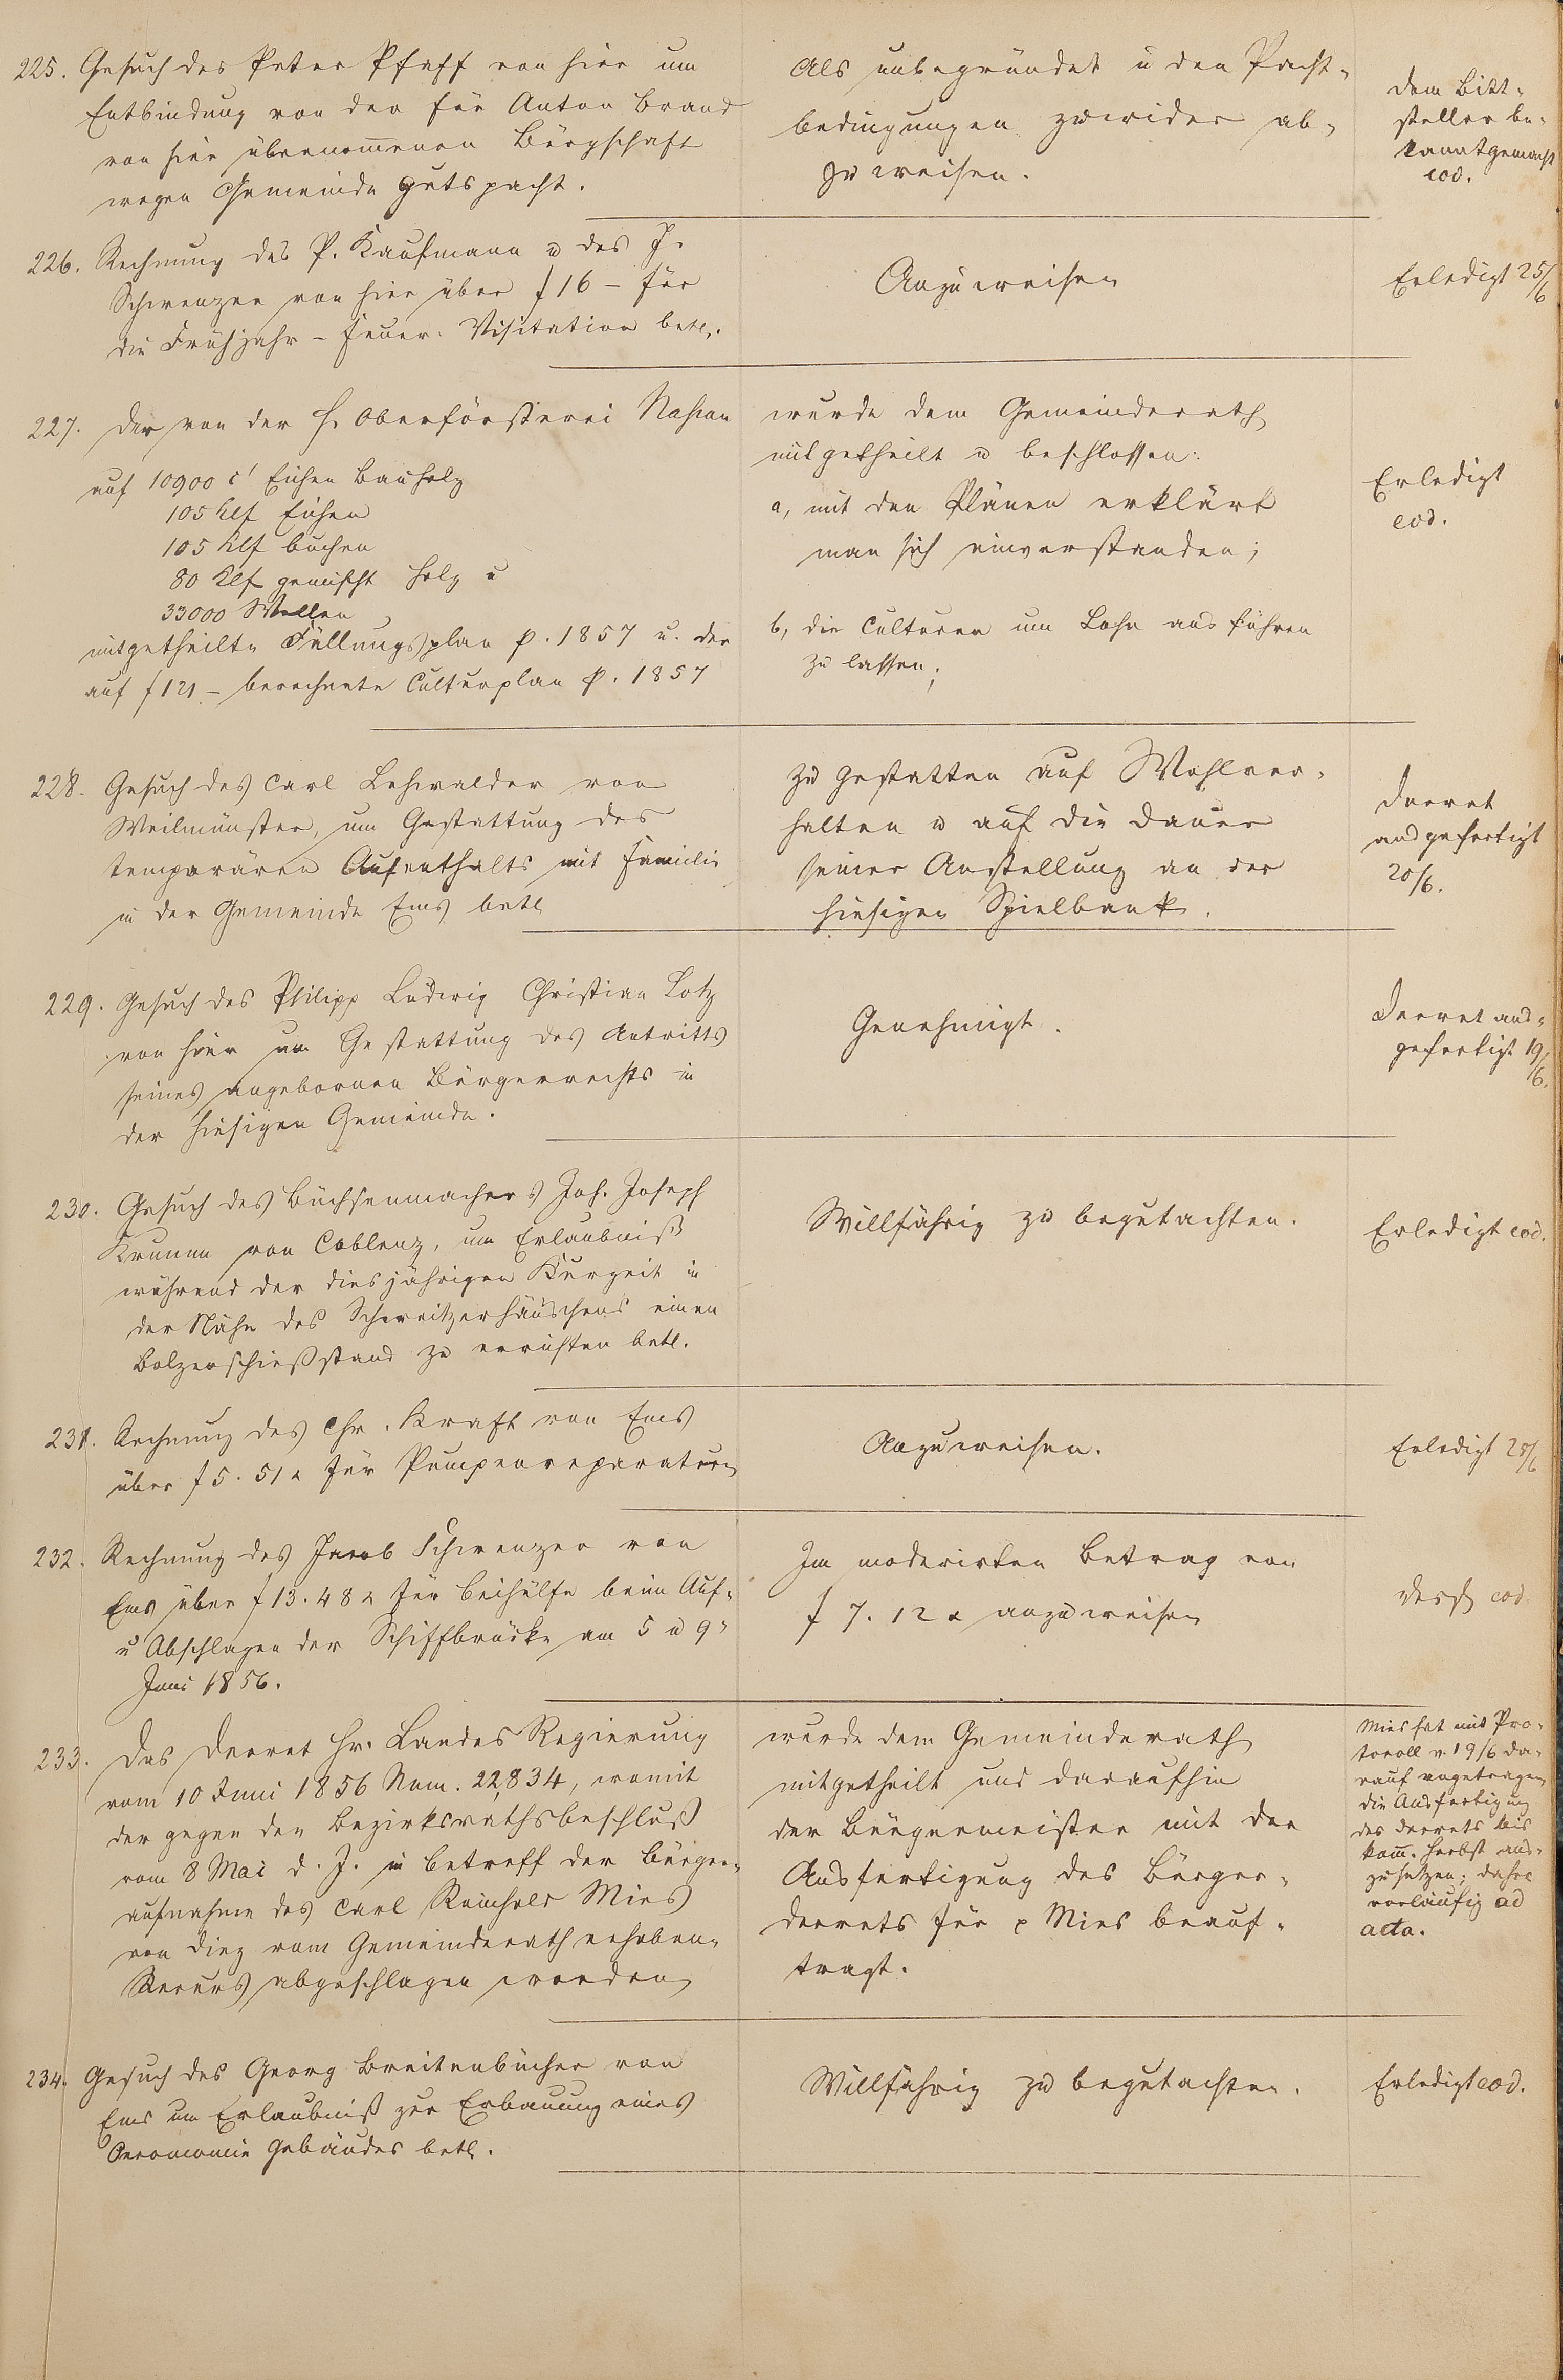 225. Gesuch des Peter Pfaff von hier um
Entbindung von der für Anton Brand
von hier übernom̄enen Bürgschaft
wegen Gemeinde Gutspacht.
Als unbegründet u den Pacht-
bedingungen zuwider ab-
zuweisen.
Dem Bitt-
steller be-
kanntgemacht
eod.
226. Rechnung des P. Kaufmann u des J.
Schwenzer von hier über f 16 – für
die Frühjahr - Feuer-Visitation betl.
Anzuweisen
Erledigt 25/6
227. Der von der H. Oberförsterei Nassau
auf 10900 c' Eichen Bauholz
105 Klf Eichen
105 Klf buchen
80 Klf gemischt Holz u
33000 Wellen
mitgetheilte Fällungsplan p. 1857 u. der
auf f 121 – berechnete Culturplan p. 1857
wurde dem Gemeinderath
mitgetheilt u beschlossen:
a, mit den Plänen erklärt
man sich einverstanden;
b, die Culturen um Lohn ausführen
zu lassen;
Erledigt
eod.
228. Gesuch des Carl Lehwalder von
Weilmünster, um Gestattung des
temporären Aufenthalts mit Familie
in der Gemeinde Ems betl
zu gestatten auf Wohlver-
halten u auf die Dauer
seiner Anstellung an der
hiesigen Spielbank.
Decret
ausgefertigt
20/6.
229. Gesuch des Philipp Ludwig Christian Lotz
von hier um Gestattung des Antritts
seines angebornen Bürgerrechts in
der hiesigen Gemeinde.
Genehmigt.
Decret aus-
gefertigt 19/6.
230. Gesuch des Büchsenmachers Joh. Joseph
Krumm von Coblenz, um Erlaubniß
während der diesjährigen Kurzeit in
der Nähe des Schweitzerhäuschens einen
Bolzenschießstand zu errichten betl.
Willfährig zu begutachten.
Erledigt eod.
231. Rechnung des Chr. Kraft von Ems
über f 5. 51 x für Pumpenreparaturen
Anzuweisen.
Erledigt 25/6
232. Rechnung des Jacob Schwenzer von
Ems über f 13. 48 x für Beihülfe beim Auf-
u Abschlagen der Schiffbrücke am 5 u 9n
Juni 1856.
Im moderirten Betrag von
f 7. 12 x anzuweisen
eod.
233. Das Decret Hr. Landes Regierung
vom 10 Juni 1856 Num. 22,834, womit
der gegen den Bezirksrathsbeschluß
vom 8 Mai d. J. in betreff der Bürger-
aufnahme des Carl Reinhold Mies
von Diez vom Gemeinderath erhobene
Recurs abgeschlagen worden
wurde dem Gemeinderath
mitgetheilt und daraufhin
der Bürgermeister mit der
Ausfertigung des Bürger-
decrets für p Mies beauf-
tragt.
Mies hat mit Pro-
tocoll v. 19/6 da-
rauf angetragen
die Ausfertigung
des Decrets bis
kom̄. Herbst aus-
zusetzen; daher
vorläufig ad
acta.
234. Gesuch des Georg Breitenbücher von
Ems um Erlaubniß zur Erbauung eines
Oeconomie Gebäudes betl.
Willfährig zu begutachten.
Erledigt eod.